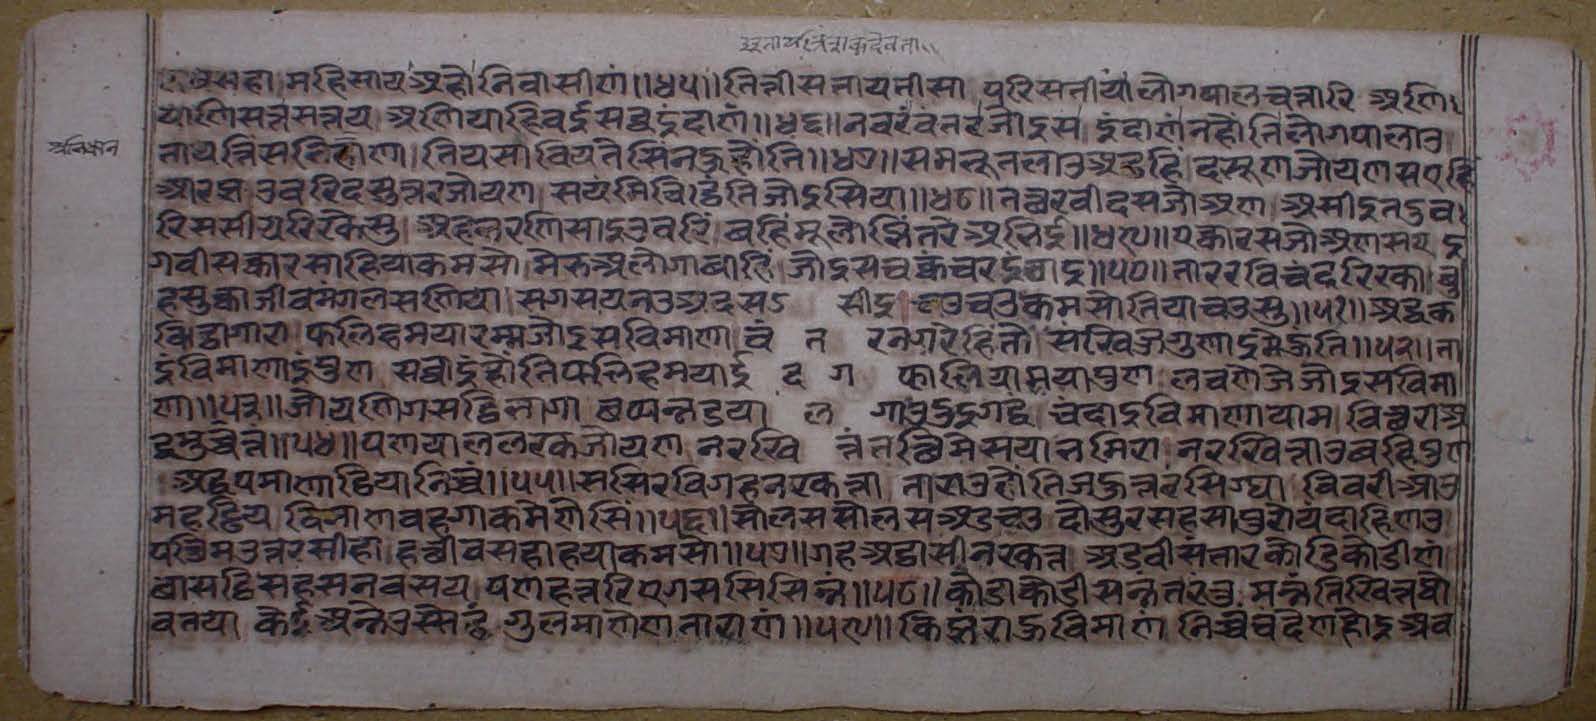 वसहा महिसाय अहो निवासीणं ॥४५॥ तित्तीस तायतीसा परिसतीया लोगपाल चत्तारि अणि
याणि सत्त सत्तय अणियाहिवई सव्वइंदाणं ॥४६॥ नवरं वंतर जोइस इंदाण नहों ति लोगपालाउ
तायत्तिसभिहाणा तियसा वियतेसिं नहु होंति ॥४७॥ समभूतलाउ अट्ठहिं दसूण जोयण सएहिं
आरब्भ उवरि दसुत्तरजोयण सयंमि चिट्ठंति जोइसिया ॥४८॥ तत्थरवी दसजोअण असीइ तदुव
रि ससीय रिरकेसु अहभरणिसाइउवरिं बहिंमूलो भिंतरे अभिई ॥४९॥ एक्कारसजोअणसय इ
गवीस क्कारसाहिया कमसो मेरु अलोगाबाहिं जोइसचक्कं चरइ ठाइ ॥५०॥ तार रवि चंद रिरका बु
ह सुक्का जीवमंगल सणिया सगसय नउअ दसऽ सीइ चउ चउ कमसो तिया चउसु ॥५१॥ अद्धक
विट्ठागारा फलिहमया रम्म जोइसविमाणा वंतरनयरेहिंतो संखिज्जगुणाइ मे हुंति ॥५२॥ ता
इं विमाणाइं पुण सव्वाइं होंति फलिहमयाइं दगफालियामया पुण लवणे जे जोइसविमा
णा ॥५३॥ जोयणिगसट्ठिभागा छप्पन्नडयाल गाउदुइगद्धं चंदाइविमाणायाम विच्छरा अ
द्धमुच्चत्तं ॥५४॥ पणयाललरकजोयण नरखित्तं तच्छिमे सया भमिरा नरखित्ताउबहिं पुण
अद्धपमाणा ट्ठिया निच्चं ॥५५॥ ससिरविगहनरकत्ता ताराउ होंति जहुत्तरं सिग्घा विवरीआउ
महट्ठिय विमाण वहगा कमेणेसिं ॥५६॥ सोलस सोलस अड चउ दोसुरसहसा पुरोय दाहिणउ
पच्छिम उत्तर सीहा हच्छी वसहा हया कमसो ॥५७॥ गह अट्ठासी नरकत्त अडवीसं तारकोडिकोडीण
बासट्ठिसहस नवसय पणहत्तरि एगससि सिन्नं ॥५८॥ कोडाकोडी सन्नंतरत्तु मन्नंति खित्तथो
वतया केई अन्ने उस्सेहंगुलमाणेण ताराणं ॥५९॥ किण्हं राहु विमाणं निच्चं चंदेण होइ अव